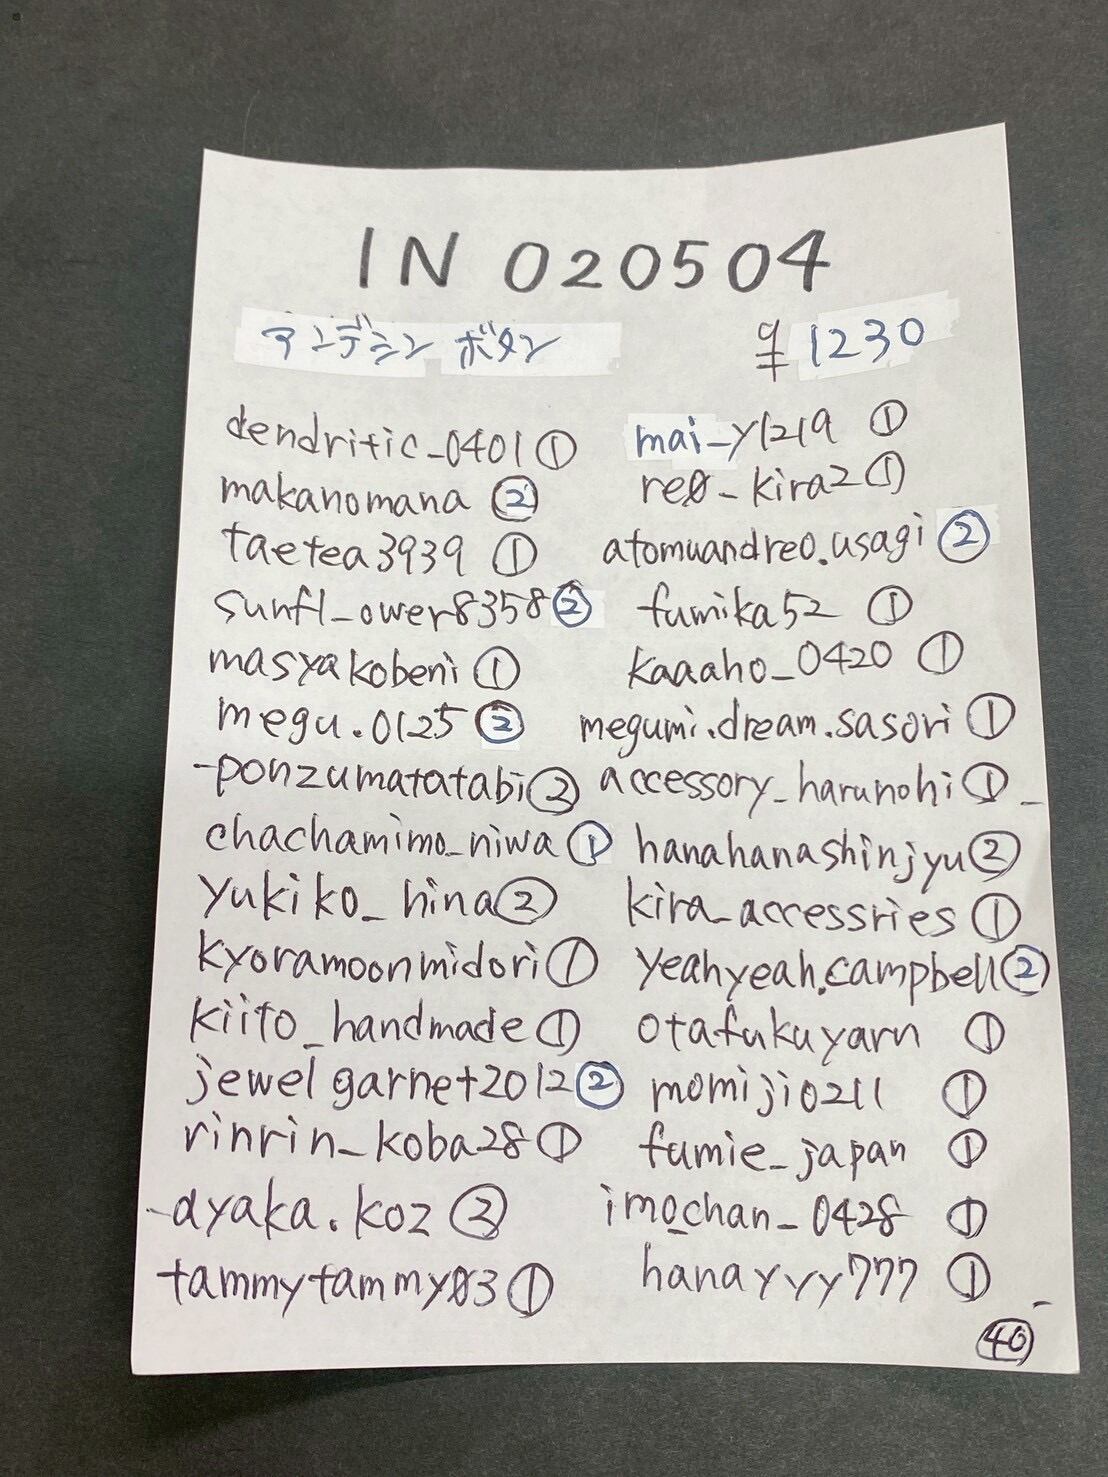 IN 020504
アンデシン ボタン ¥1230
dendritic_0401 ① mai_y1219 ①
makanomana ② re0_kira2 ①
taetea3939 ① atomuandreo.usagi ②
sunfl_ower8358 ② fumika52 ①
masyakobeni ① kaaaho_0420 ①
megu.0125 ② megumi.dream.sasori ①
-ponzumatatabi ② accessory_harunohi ① _
chachamimo_niwa ① hanahanashinjyu ②
yukiko_hina ② kira_accessries ①
kyoramoonmidori ① yeahyeah.campbell ②
kiito_handmade ① otafukuyarn ①
jewelgarnet2012 ② momiji0211 ①
rinrin_koba28 ① fumie_japan ①
-ayaka.koz ② imo_chan_0428 ①
tammytammy03 ① hanayyy777 ①
㊵